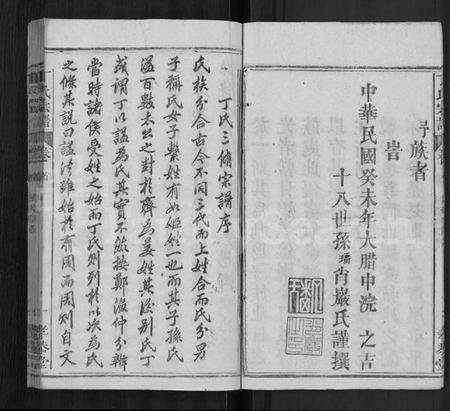 尋族者
告
中華民國癸未年大腊中浣 之吉
十八世孫璠肖巖氏謹撰
丁氏三脩宗譜序
氏族分合古今不同三代而上姓合而氏分男
子稱氏女子繫姓有如姬姓一也而其子孫氏
溢百數太公之對於齊為姜姓其後別氏丁
或謂丁以諡為氏其實不然按鄭漁仲分辨
當時諸侯受姓之始而丁氏則列於以次為氏
之條其說曰諡法雖始於有周而周則自文